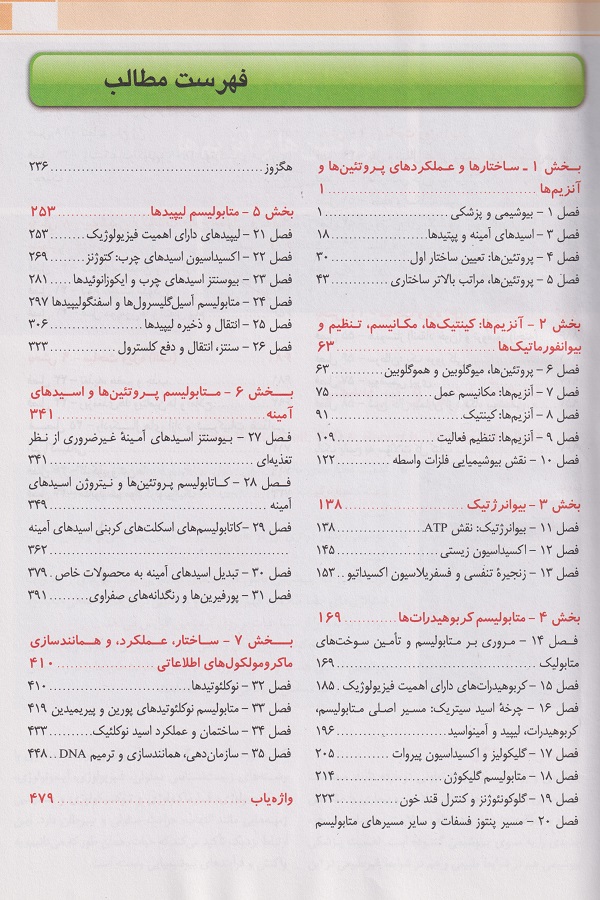 فهرست مطالب
بخش ۱ ـ ساختارها و عملکردهای پروتئین‌ها و
آنزیم‌ها ........ ۱
فصل ۱ - بیوشیمی و پزشکی ........ ۱
فصل ۳ - اسیدهای آمینه و پپتیدها ........ ۱۸
فصل ۴ - پروتئین‌ها: تعیین ساختار اول ........ ۳۰
فصل ۵ - پروتئین‌ها، مراتب بالاتر ساختاری ........ ۴۳
بخش ۲ - آنزیم‌ها: کینتیک‌ها، مکانیسم، تنظیم و
بیوانفورماتیک‌ها ........ ۶۳
فصل ۶ - پروتئین‌ها، میوگلوبین و هموگلوبین ........ ۶۳
فصل ۷ - آنزیم‌ها: مکانیسم عمل ........ ۷۵
فصل ۸ - آنزیم‌ها: کینتیک ........ ۹۱
فصل ۹ - آنزیم‌ها: تنظیم فعالیت ........ ۱۰۹
فصل ۱۰ - نقش بیوشیمیایی فلزات واسطه ........ ۱۲۲
بخش ۳ - بیوانرژتیک ........ ۱۳۸
فصل ۱۱ - بیوانرژتیک: نقش ATP ........ ۱۳۸
فصل ۱۲ - اکسیداسیون زیستی ........ ۱۴۵
فصل ۱۳ - زنجیرهٔ تنفسی و فسفریلاسیون اکسیداتیو .. ۱۵۳
بخش ۴ - متابولیسم کربوهیدرات‌ها ........ ۱۶۹
فصل ۱۴ - مروری بر متابولیسم و تأمین سوخت‌های
متابولیک ........ ۱۶۹
فصل ۱۵ - کربوهیدرات‌های دارای اهمیت فیزیولوژیک . ۱۸۵
فصل ۱۶ - چرخهٔ اسید سیتریک: مسیر اصلی متابولیسم،
کربوهیدرات، لیپید و آمینواسید ........ ۱۹۶
فصل ۱۷ - گلیکولیز و اکسیداسیون پیروات ........ ۲۰۵
فصل ۱۸ - متابولیسم گلیکوژن ........ ۲۱۴
فصل ۱۹ - گلوکونئوژنز و کنترل قند خون ........ ۲۲۳
فصل ۲۰ - مسیر پنتوز فسفات و سایر مسیرهای متابولیسم
هگزوز ........ ۲۳۶
بخش ۵ - متابولیسم لیپیدها ........ ۲۵۳
فصل ۲۱ - لیپیدهای دارای اهمیت فیزیولوژیک ........ ۲۵۳
فصل ۲۲ - اکسیداسیون اسیدهای چرب: کتوژنز ........ ۲۶۹
فصل ۲۳ - بیوسنتز اسیدهای چرب و ایکوزانوئیدها ........ ۲۸۱
فصل ۲۴ - متابولیسم آسیل‌گلیسرول‌ها و اسفنگولیپیدها ۲۹۷
فصل ۲۵ - انتقال و ذخیره لیپیدها ........ ۳۰۶
فصل ۲۶ - سنتز، انتقال و دفع کلسترول ........ ۳۲۳
بخش ۶ - متابولیسم پروتئین‌ها و اسیدهای
آمینه ........ ۳۴۱
فصل ۲۷ - بیوسنتز اسیدهای آمینهٔ غیرضروری از نظر
تغذیه‌ای ........ ۳۴۱
فصل ۲۸ - کاتابولیسم پروتئین‌ها و نیتروژن اسیدهای
آمینه ........ ۳۴۹
فصل ۲۹ - کاتابولیسم‌های اسکلت‌های کربنی اسیدهای آمینه
........ ۳۶۲
فصل ۳۰ - تبدیل اسیدهای آمینه به محصولات خاص . ۳۷۹
فصل ۳۱ - پورفیرین‌ها و رنگدانه‌های صفراوی ........ ۳۹۱
بخش ۷ - ساختار، عملکرد، و همانندسازی
ماکرومولکول‌های اطلاعاتی ........ ۴۱۰
فصل ۳۲ - نوکلئوتیدها ........ ۴۱۰
فصل ۳۳ - متابولیسم نوکلئوتیدهای پورین و پیریمیدین ۴۱۹
فصل ۳۴ - ساختمان و عملکرد اسید نوکلئیک ........ ۴۳۳
فصل ۳۵ - سازمان‌دهی، همانندسازی و ترمیم DNA .. ۴۴۸
واژه‌یاب ........ ۴۷۹